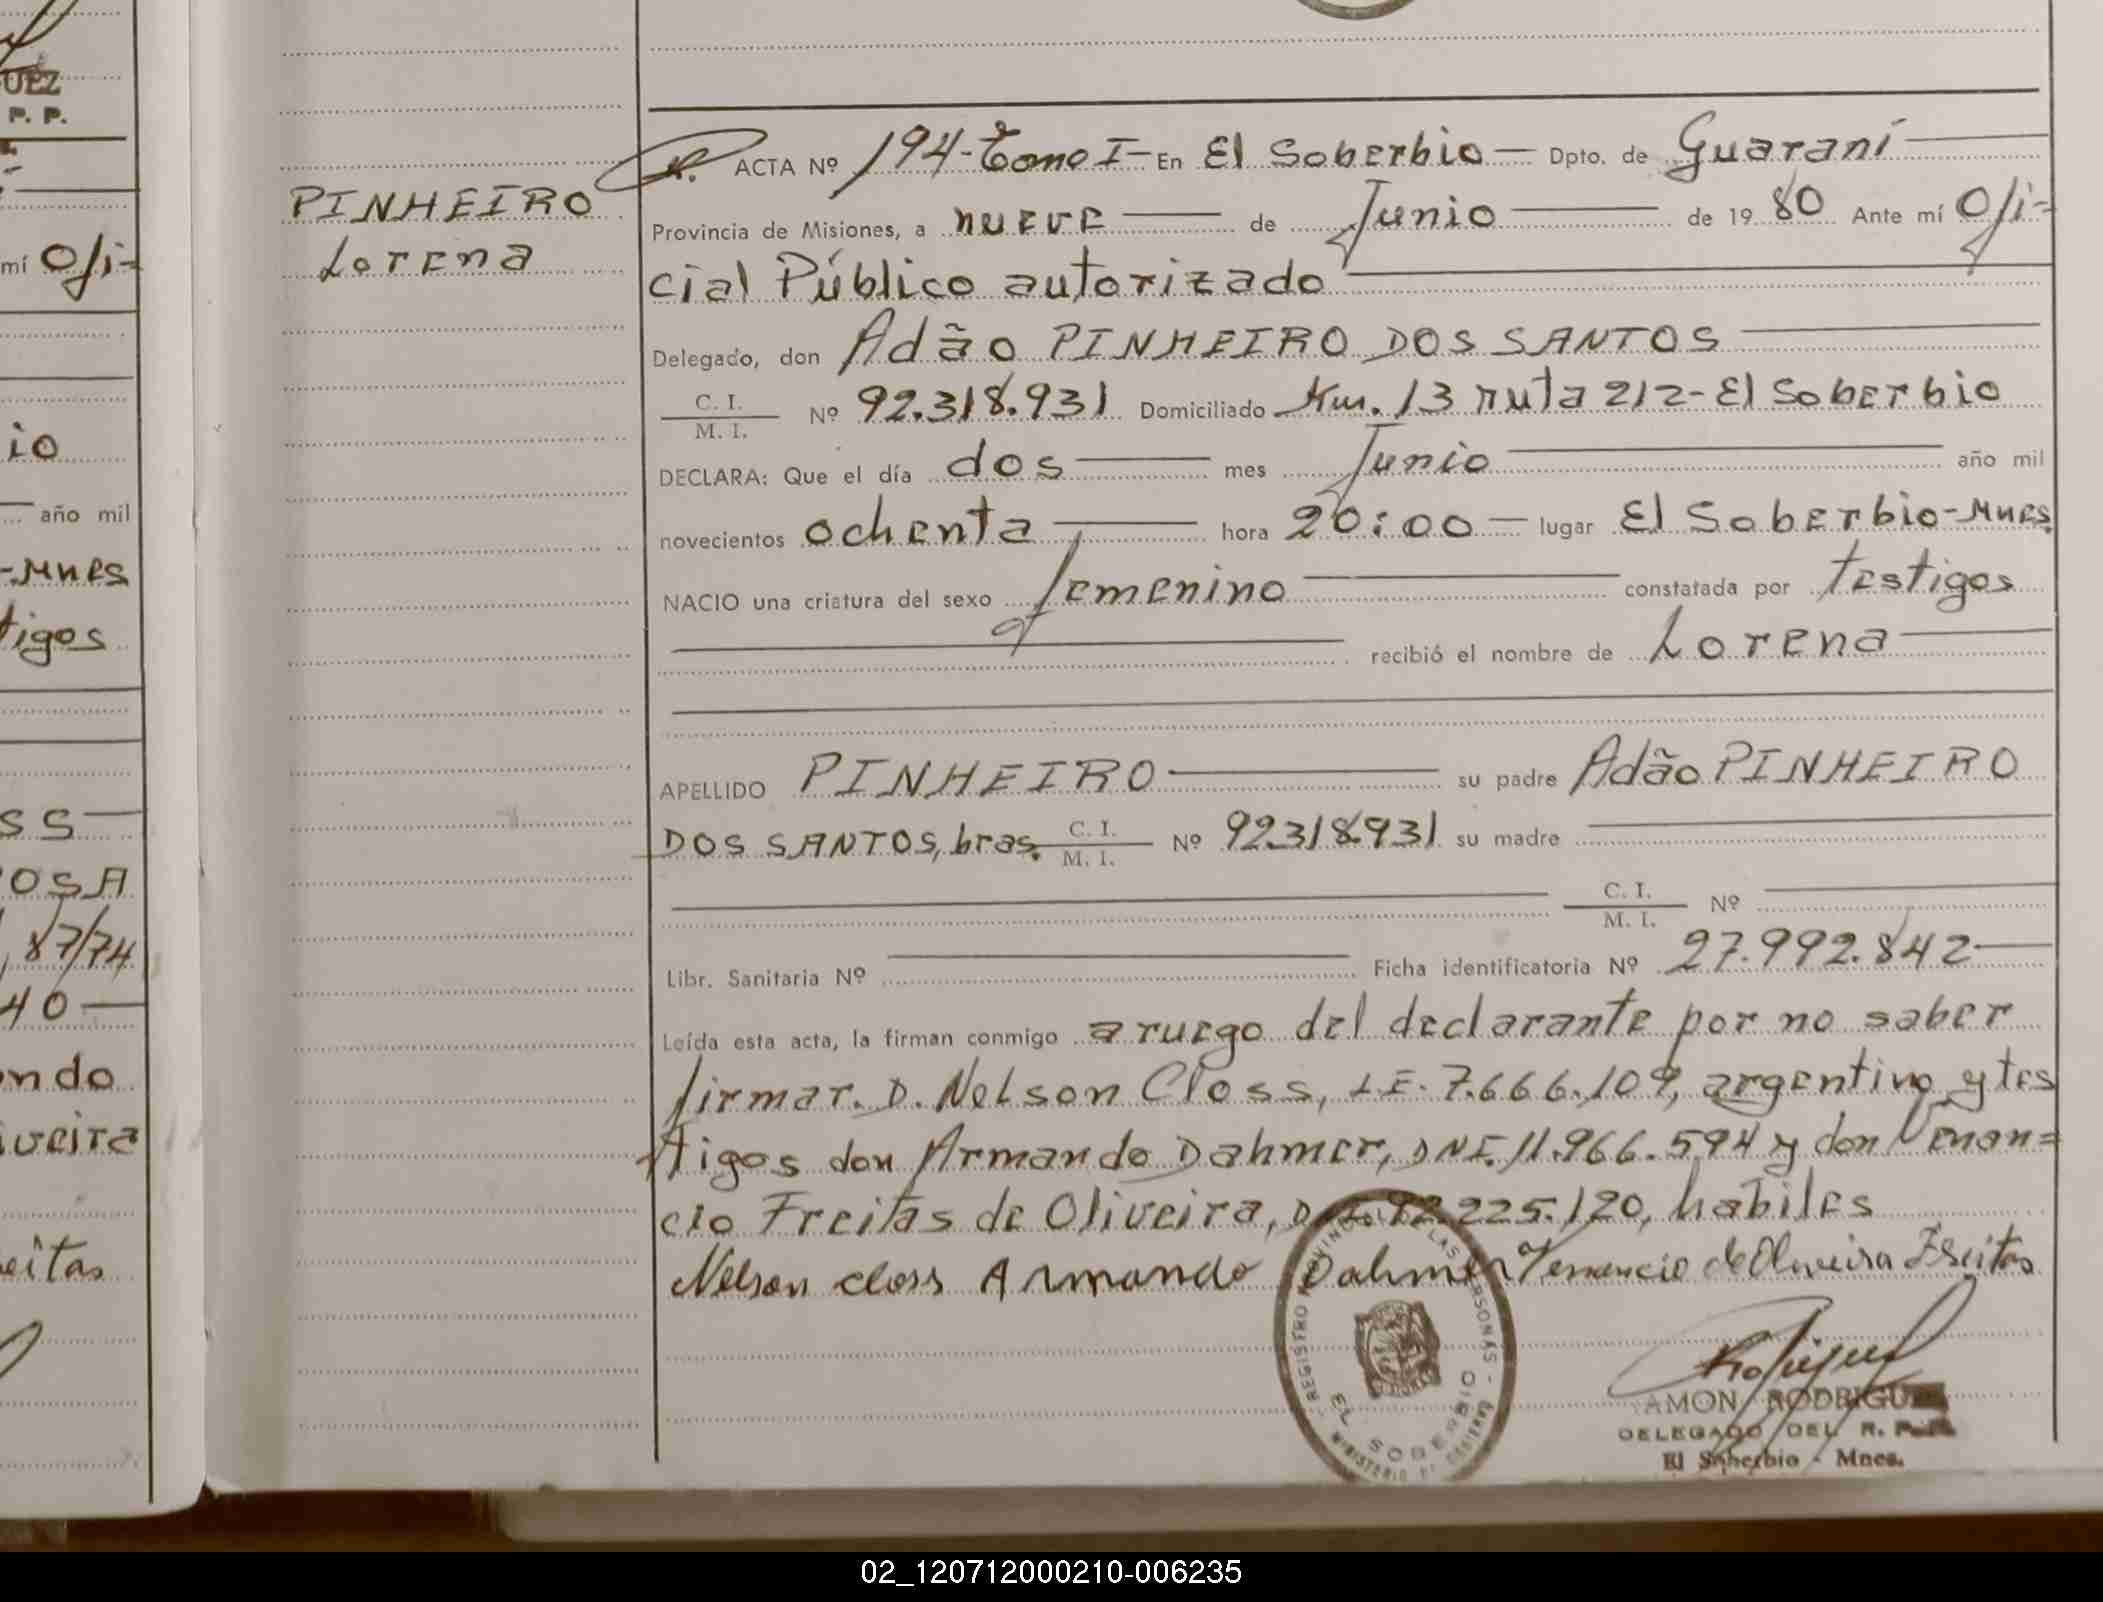 UEZ
P. P.
mí Ofi-
io
año mil
-Mnes
tigos
ss
OSA
87/74
40
ndo
iveira
eitas
PINHEIRO
Lorena
ACTA Nº 194-Tomo I- En El Soberbio Dpto. de Guaraní
Provincia de Misiones, a nueve de Junio de 1980 Ante mí Ofi-
cial Público autorizado
Delegado, don Adão PINHEIRO DOS SANTOS
C. I. / M. I. Nº 92.318.931 Domiciliado Km. 13 ruta 212-El Soberbio
DECLARA: Que el día dos mes Junio año mil
novecientos ochenta hora 20:00 lugar El Soberbio-Mnes.
NACIO una criatura del sexo femenino constatada por testigos
recibió el nombre de Lorena
APELLIDO PINHEIRO su padre Adão PINHEIRO
DOS SANTOS, bras. C. I. / M. I. Nº 92.318.931 su madre
C. I. / M. I. Nº
Libr. Sanitaria Nº Ficha identificatoria Nº 27.992.842
Leída esta acta, la firman conmigo a ruego del declarante por no saber
firmar. D. Nelson Closs, L.E. 7.666.109, argentino y tes
tigos don Armando Dahmer, DNI. 11.966.594 y don Venan=
cio Freitas de Oliveira, DNI. 92.225.120, habiles
Nelson closs Armando Dahmer Venancio de Oliveira Freitas
REGISTRO PROVINCIAL DE LAS PERSONAS
EL SOBERBIO
MINISTERIO DE GOBIERNO
AMON RODRIGUEZ
DELEGADO DEL R. P. P.
El Soberbio - Mnes.
02_120712000210-006235